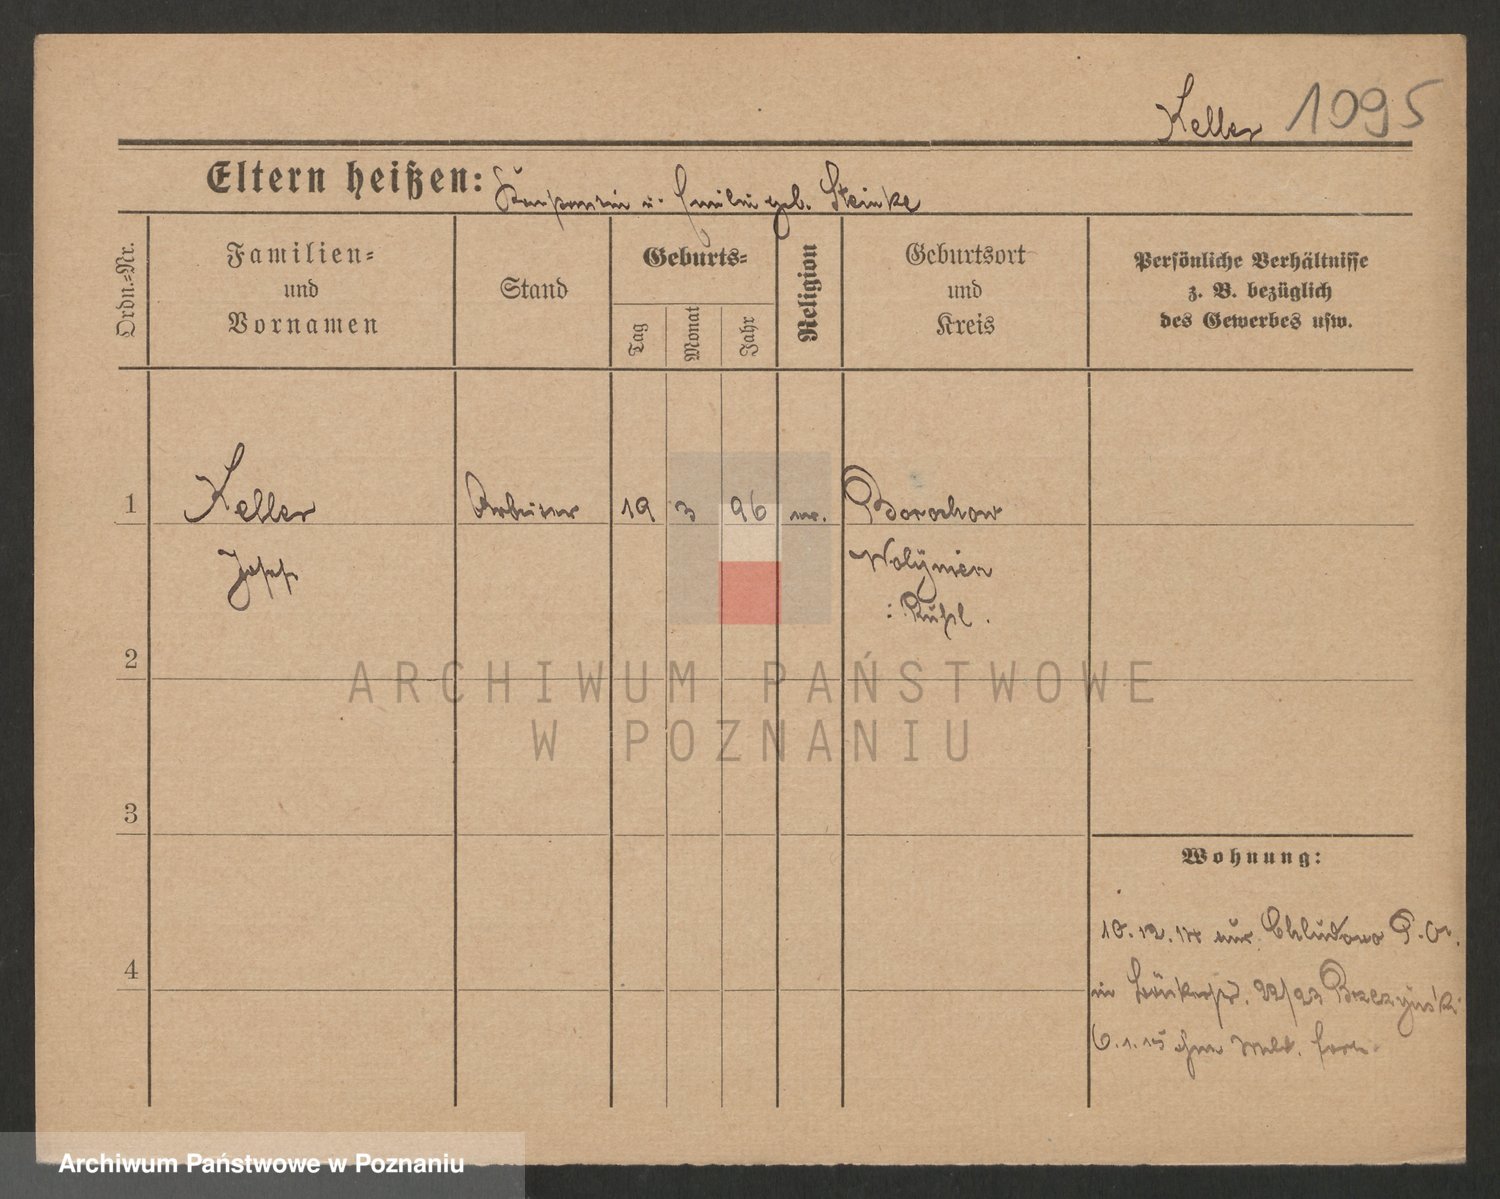 Keller 1095
Eltern heißen: u. Emilie geb. Steinke
Ordn.=Nr.
Familien=
und
Vornamen
Stand
Geburts=
Tag
Monat
Jahr
Religion
Geburtsort
und
Kreis
Persönliche Verhältnisse
z. B. bezüglich
des Gewerbes usw.
1 Keller Arbeiter 19 3 96 ev. Borochow
Josef Wolÿnien
: Rußl.
2
ARCHIWUM PAŃSTWOWE
W POZNANIU
3
Wohnung:
10.12.14 aus Chludowo P. O.
in 22/23 Brzezinski
4
6.1.15 ohne Meld. fort.
Archiwum Państwowe w Poznaniu